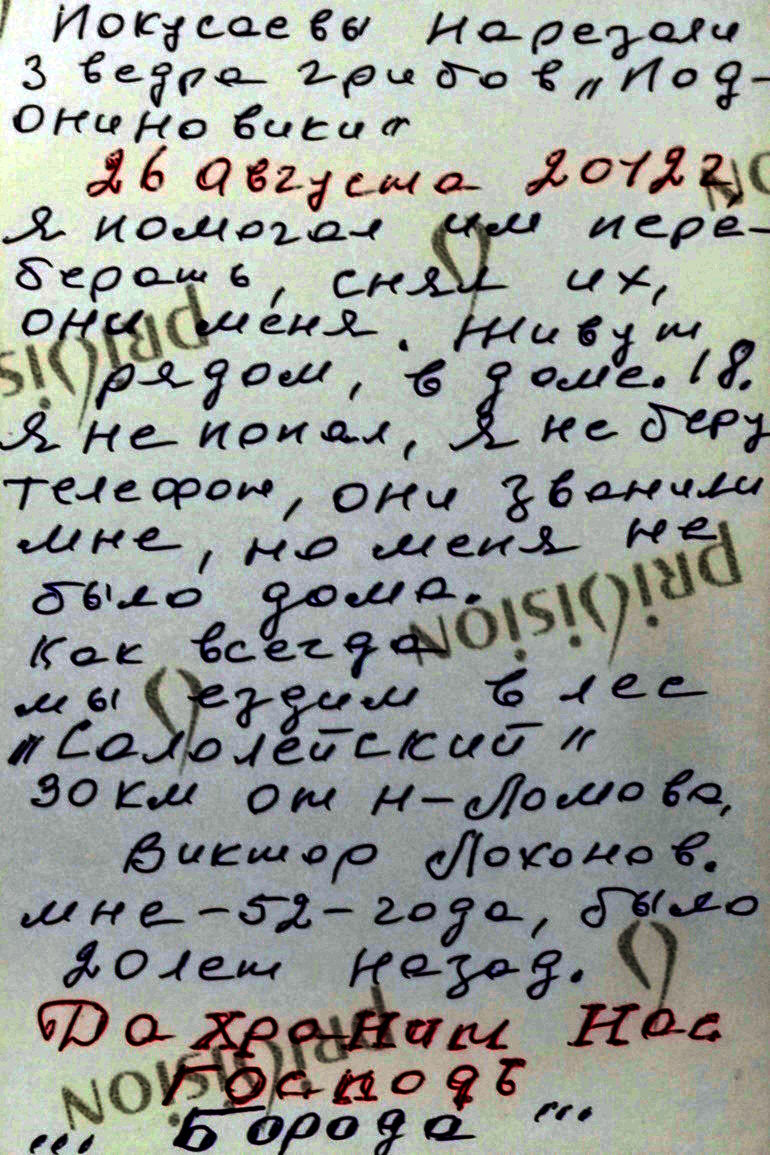 Йокусаевы нарезали
3 ведра грибов „Под-
онино вики"
26 Августа 2012г,
Я помогал им пере-
берать, снял их,
они меня. Живут
рядом, в доме. 18.
Я не попал, Я не беру
телефон, они званили
мне, но меня не
было дома.
Как всегда
мы ездим в лес
"Сололейский"
30 км от Н-Ломова,
Виктор Лохонов.
мне-52-года, было
20 лет назад.
Да храним Нас
Господь
... Борода ...
priVision
priVision
priVision